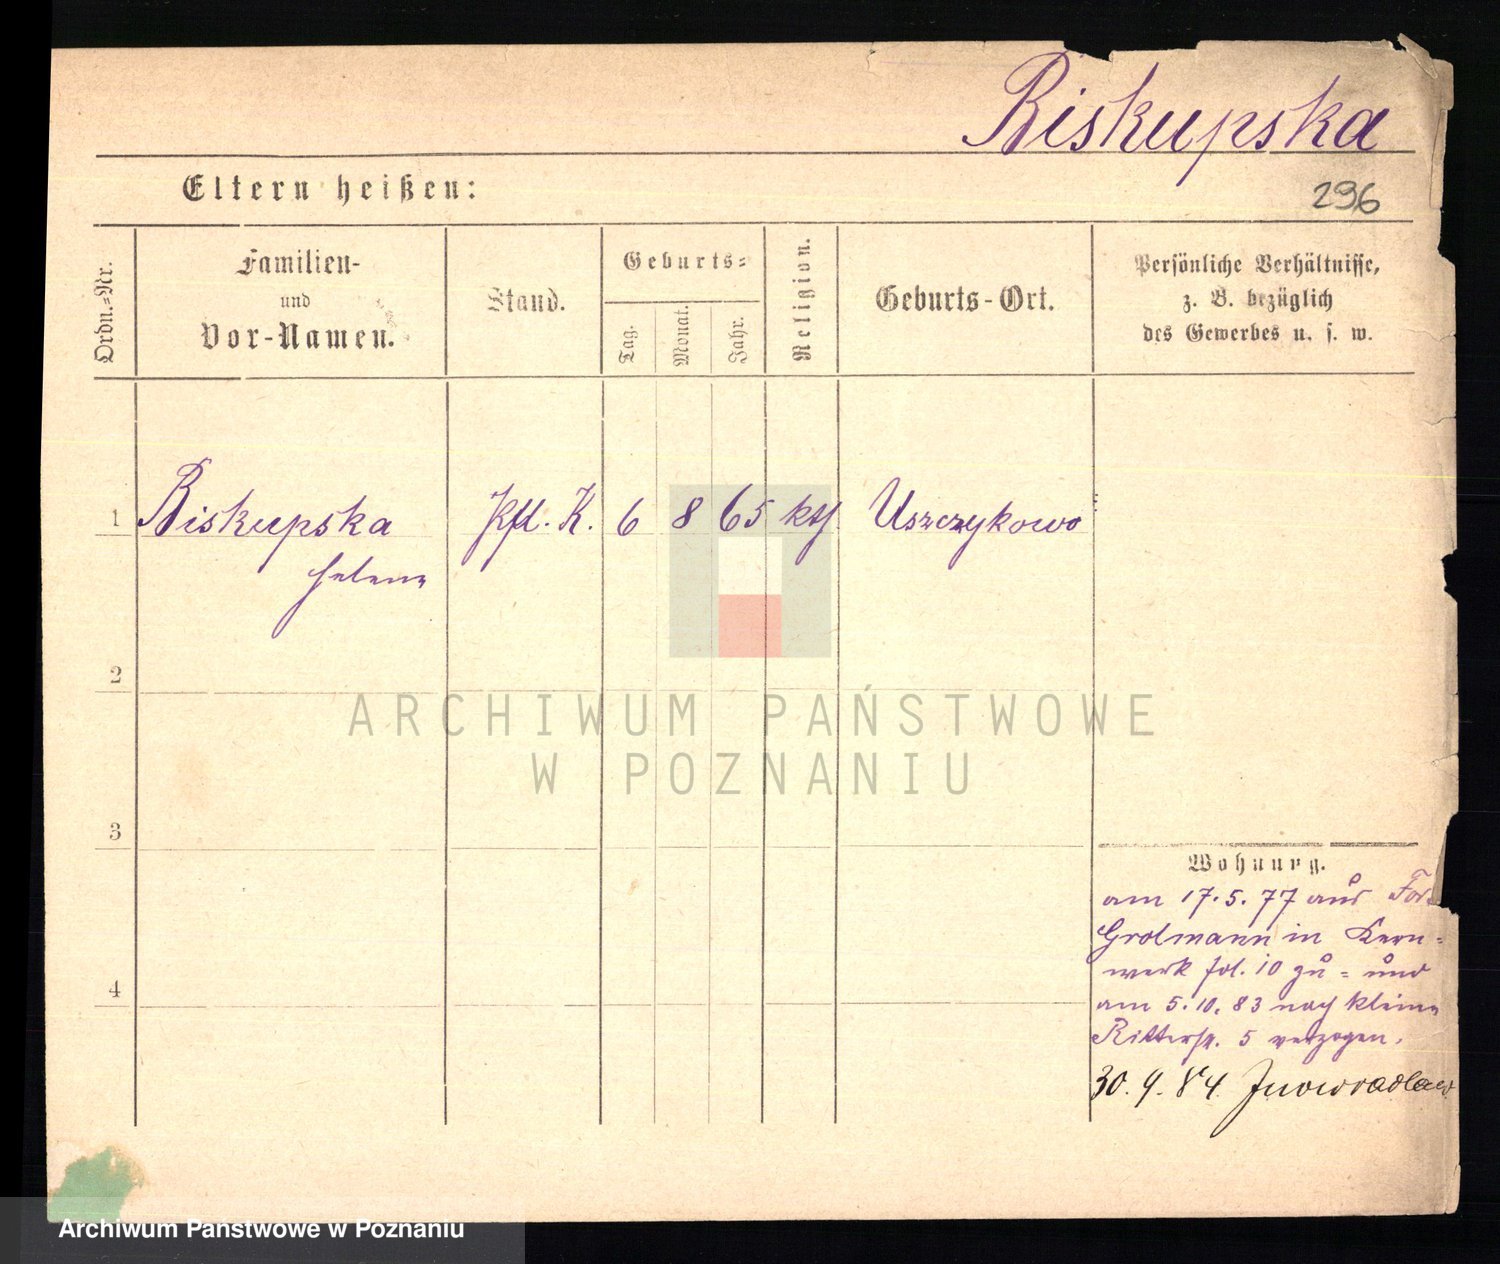 Biskupska
Eltern heißen:
296
Ordn.-Nr.
Familien-
und
Vor-Namen.
Stand.
Geburts-
Tag.
Monat.
Jahr.
Religion.
Geburts-Ort.
Persönliche Verhältnisse,
z. B. bezüglich
des Gewerbes u. s. w.
1 Biskupska K. 6 8 65 kth Uszczykowo
Helene
2
ARCHIWUM PAŃSTWOWE
W POZNANIU
3
Wohnung.
am 17.5.77 aus For
Grolmann in Kern-
werk fol. 10 zu- und
4
am 5.10.83 nach kleine
Ritterstr. 5 verzogen.
30.9.84 Inowradlaw
Archiwum Państwowe w Poznaniu